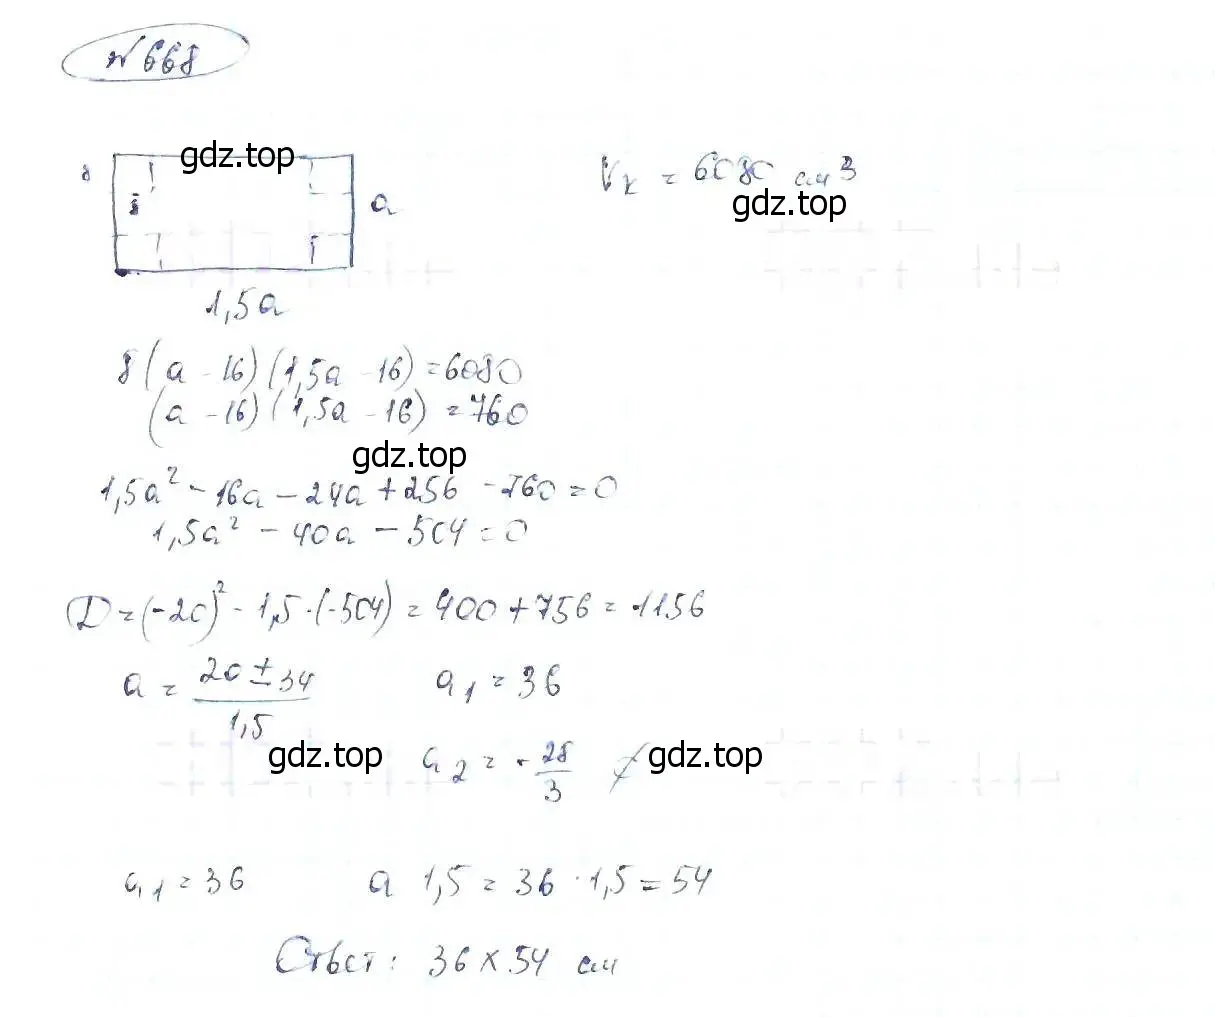 №668
8
gdz.top
a
1,5a
Vк = 6080 см3
gdz.top
8(a - 16)(1,5a - 16) = 6080
(a - 16)(1,5a - 16) = 760
gdz.top
1,5a² - 16a - 24a + 256 - 760 = 0
1,5a² - 40a - 504 = 0
D = (-20)² - 1,5·(-504) = 400 + 756 = 1156
a = (20 ± 34)/1,5 a1 = 36
gdz.top
a2 = -28/3
gdz.top
a1 = 36 a 1,5 = 36 · 1,5 = 54
Ответ: 36 x 54 см